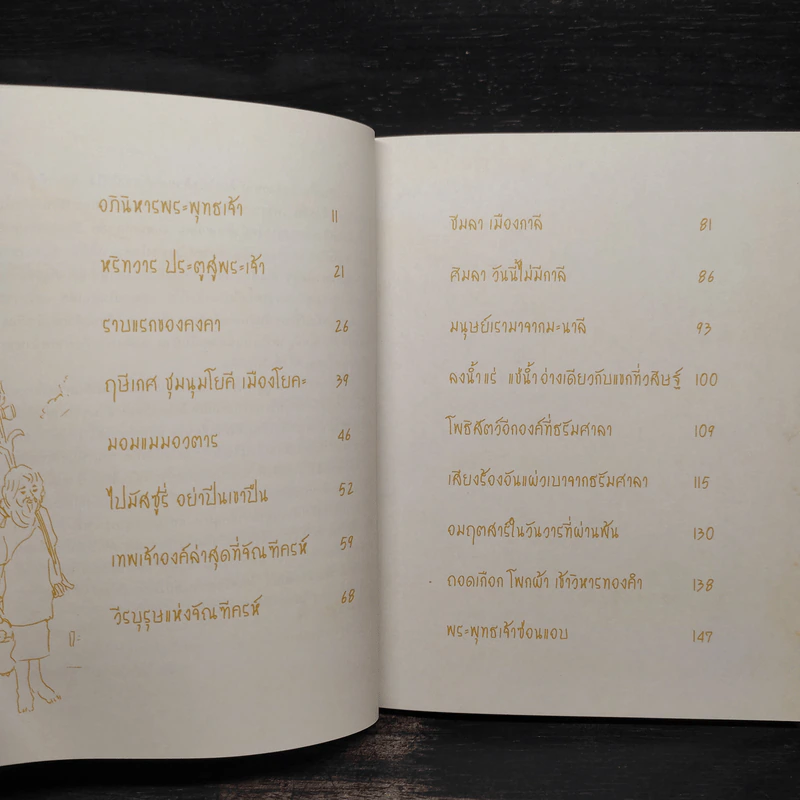 อภินิหารพระพุทธเจ้า 11
หริทวาร ประตูสู่พระเจ้า 21
ราบแรกของคงคา 26
ฤษีเกศ ชุมนุมโยคี เมืองโยคะ 39
มอมแมมอวตาร 46
ไปมัสซูรี่ อย่าปีนเขาปืน 52
เทพเจ้าองค์ล่าสุดที่จัณฑีครห์ 59
วีรบุรุษแห่งจัณฑีครห์ 68
ชิมลา เมืองกาลี 81
ศิมลา วันนี้ไม่มีกาลี 86
มนุษย์เรามาจากมะนาลี 93
ลงน้ำแร่ แช่น้ำอ่างเดียวกับแขกที่วสิษฐ์ 100
โพธิสัตว์อีกองค์ที่ธรัมศาลา 109
เสียงร้องอันแผ่วเบาจากธรัมศาลา 115
อมฤตสาร์ในวันวารที่ผ่านพ้น 130
ถอดเกือก โพกผ้า เข้าวิหารทองคำ 138
พระพุทธเจ้าซ่อนแอบ 147